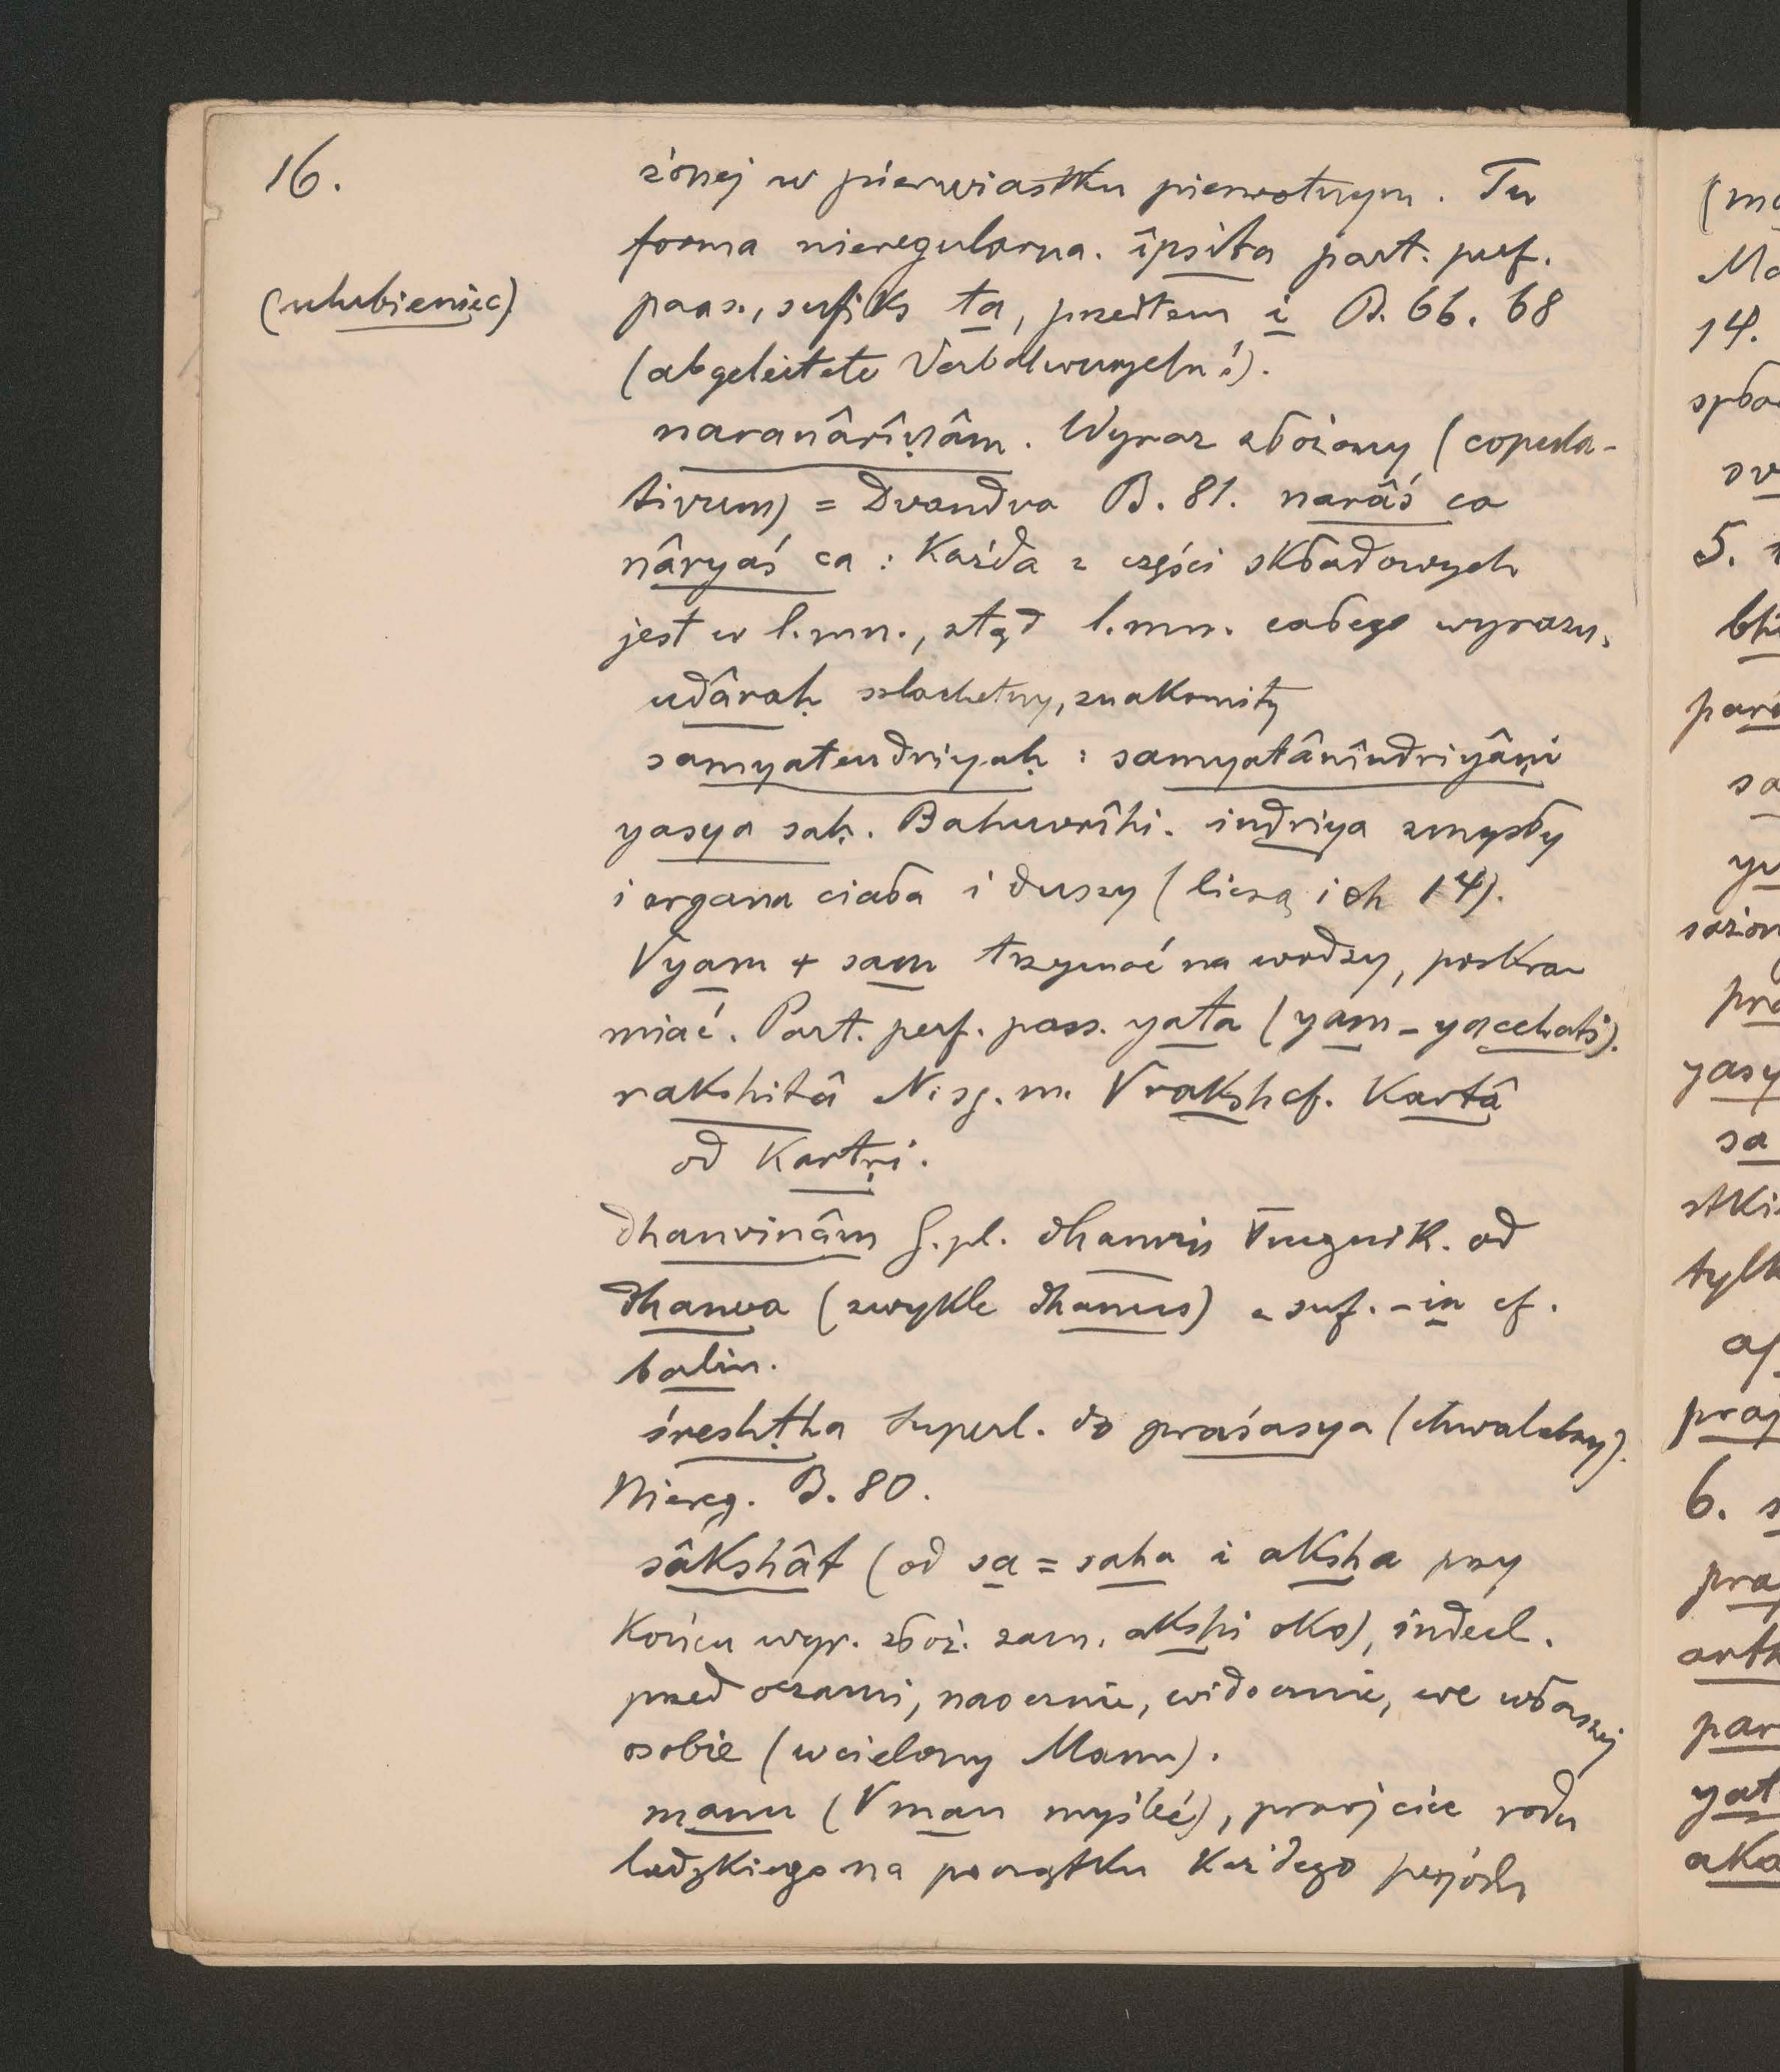 16.
żonej w pierwiastku pierwotnym. Tu
forma nieregularna. îpsita part. perf.
(ulubieniec)
pass., sufiks ta, przedtem i B. 66. 68
(abgeleitete Verbalwurzeln!).
naranârîṇâm. Wyraz złożony (copula-
tivum) = Dvandva B. 81. narâś ca
nâryaś ca : Każda z części składowych
jest w l. mn., stąd l. mn. całego wyrazu.
udâraḥ szlachetny, znakomity
samyatendriyaḥ : samyatânîndriyâṇi
yasya saḥ. Bahuvrîhi. indriya zmysły
i organa ciała i duszy (liczą ich 14).
√yam + sam trzymać na wodzy, poskra-
miać. Part. perf. pass. yata (yam - yacchati).
rakshitâ N. sg. m. √raksh cf. Kartâ
od Kartṛi.
dhanvinâm G. pl. dhanvin łucznik. od
dhanva (zwykle dhanus) z suf. -in cf.
balin.
śreshṭha superl. do praśasya (chwalebny).
Niereg. B. 80.
sâkshât (od sa = saha i aksha przy
końcu wyr. złoż. zam. akshi oko), indecl.
przed oczami, naocznie, widocznie, we własnej
osobie (wcielony Manu).
manu (√man myśleć), praojciec rodu
ludzkiego na początku każdego perjodu
(ma
Ma
14.
5.
pará
sa
yu
pra
yasy
sa
stki
tylk
praj
6. s
pra
arth
par
yat
aka